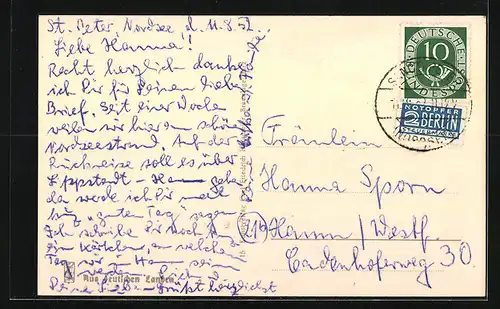 St. Peter, Nordsee, d. 11.8.52
Liebe Hanna!
Recht herzlich danke
ich Dir für Deinen lieben
Brief. Seit einer Woche
weilen wir hier am schönen
Nordseestrand. Auf der
Rückreise soll es über
Lippstadt - Hamm gehen
da werde ich Dir mal
"guten Tag" sagen.
Ich schreibe Dir noch
ein Kärtchen, an welchem
Tag wir in Hamm sein
werden.
Deine grüßt herzlichst
Aus deutschen Landen
DEUTSCHE
BUNDESPOST
10
NOTOPFER
2 BERLIN
STEUERMARKE
Fräulein
Hanna Sporn
(21b) Hamm / Westf.
Cadenhoferweg 30.